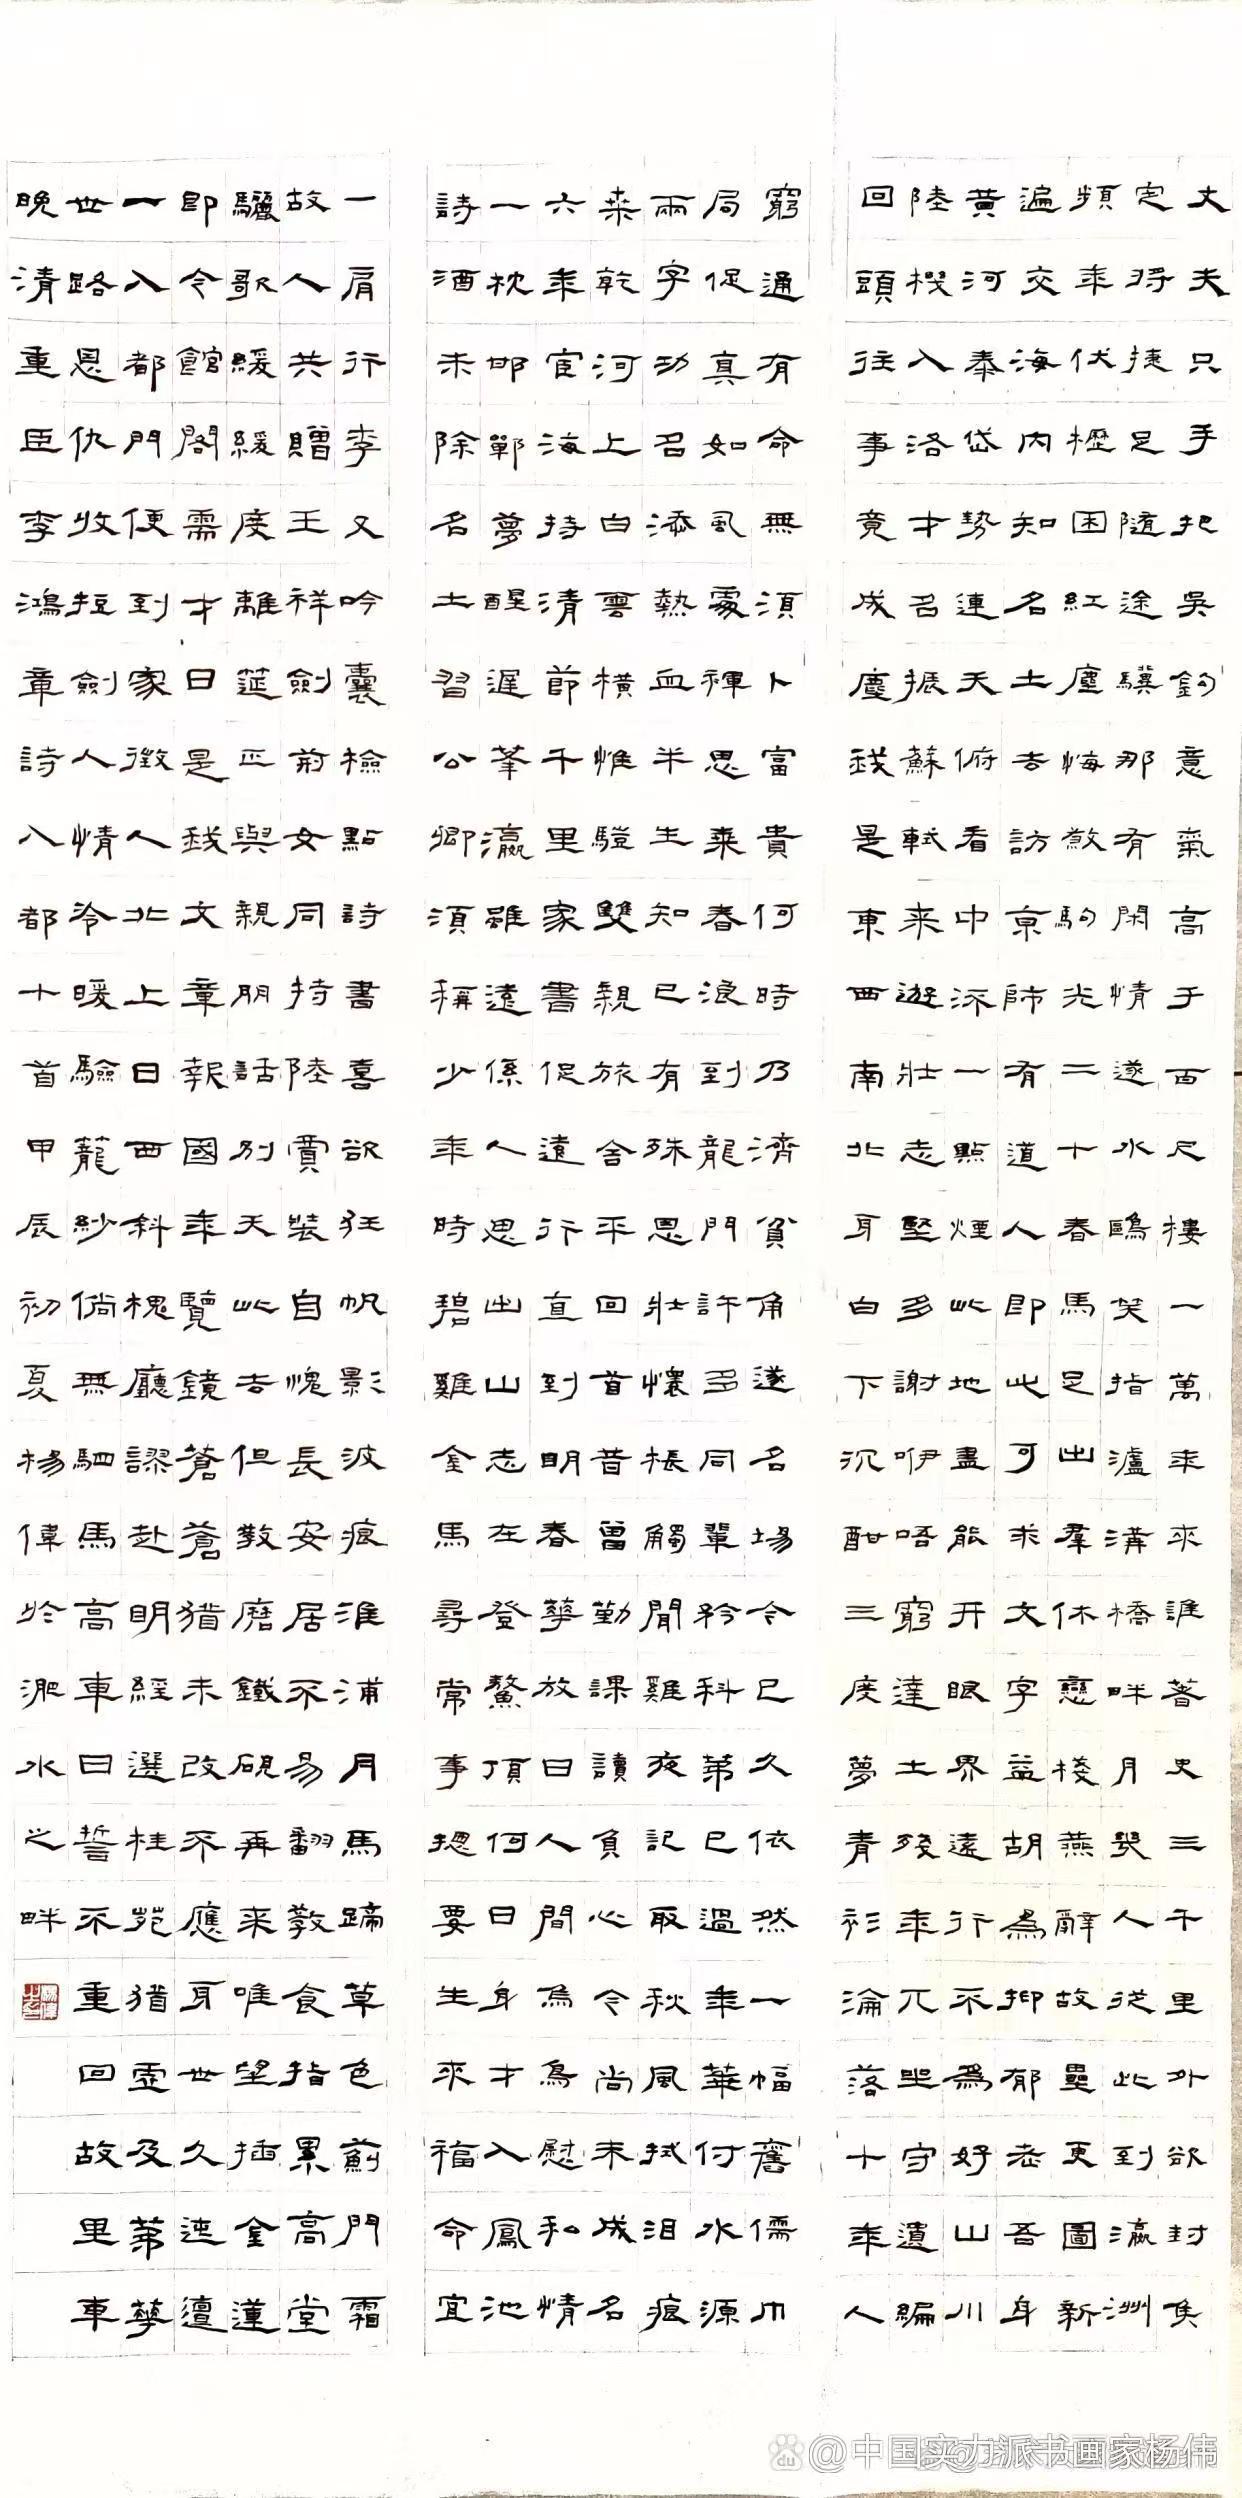 丈夫只手把吳鉤意氣高于百尺樓一萬年來誰著史三千里外欲封侯
定將捷足隨途驥那有閑情逐水鷗笑指瀘溝橋畔月幾人從此到瀛洲
頻年伏櫪困紅塵悔煞駒光二十春馬足出群休戀棧燕辭故壘更圖新
遍交海內知名士去訪京師有道人即此可求文字益胡為抑郁老吾身
黃河泰岱勢連天俯看中流一點煙此地盡能開眼界遠行不為好山川
陸機入洛才名振蘇軾來遊壯志堅多謝咿唔窮達士殘年兀坐守遺編
回頭往事竟成塵我是東西南北身白下沉酣三度夢青衫淪落十年人
窮通有命無須卜富貴何時乃濟貧角逐名場今已久依然一幅舊儒巾
局促真如虱處褌思乘春浪到龍門許多同輩矜科第已過年華付水源
兩字功名添熱血半生知己有殊恩壯懷棖觸聞雞夜記取秋風拭淚痕
桑乾河上白雲橫惟驗雙親旅舍平回首昔曾勤課讀負心今尚未成名
六年宦海持清節千里家書促遠行直到明春華放日人間烏鳥慰私情
一枕邯鄲夢醒遲蓬瀛雖遠係人思出山志在登鰲頂何日身才入鳳池
詩酒未除名士習公卿須稱少年時碧雞金馬尋常事總要生來福命宜
一肩行李又吟囊檢點詩書喜欲狂帆影波痕淮浦月馬蹄草色薊門霜
故人共贈王祥劍荊女同持陸賈裝自愧長安居不易翻教食指累高堂
驪歌緩緩度離筵正與親朋話別天此去但教磨鐵硯再來唯望插金蓮
即令館閣需才日是我文章報國年覽鏡蒼蒼猶未改不應身世久迍邅
一入都門便到家徵人北上日西斜槐廳謬赴明經選桂苑猶虛及第華
世路恩仇收拉劍人情冷暖驗籠紗倘無駟馬高車日誓不重回故里車
晚清重臣李鴻章詩入都十首甲辰初夏楊偉於淝水之畔
楊偉之印
@中国实力派书画家杨伟